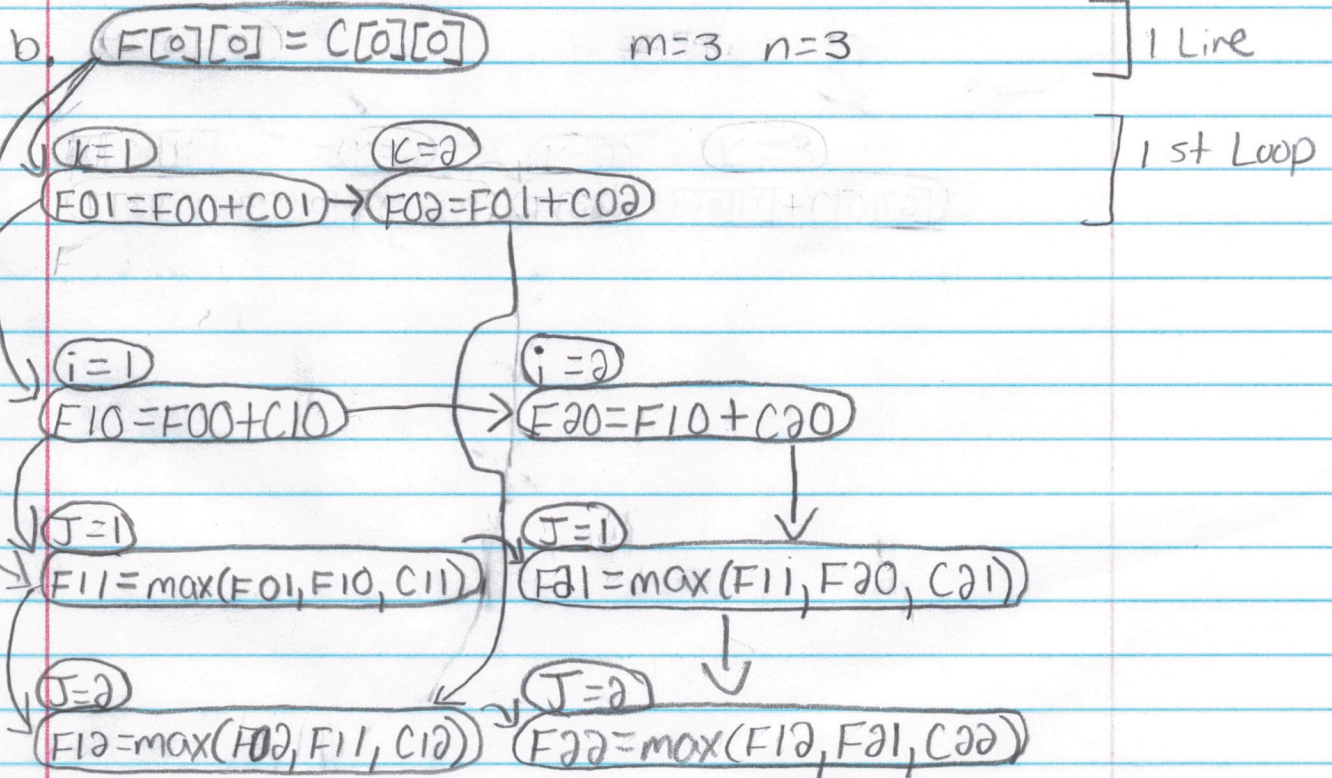 b. F[0][0] = C[0][0] m=3 n=3 1 Line
K=1 K=2 1st Loop
F01=F00+C01 F02=F01+C02
i=1 i=2
F10=F00+C10 F20=F10+C20
J=1 J=1
F11=max(F01,F10,C11) F21=max(F11,F20,C21)
J=2 J=2
F12=max(F02,F11,C12) F22=max(F12,F21,C22)